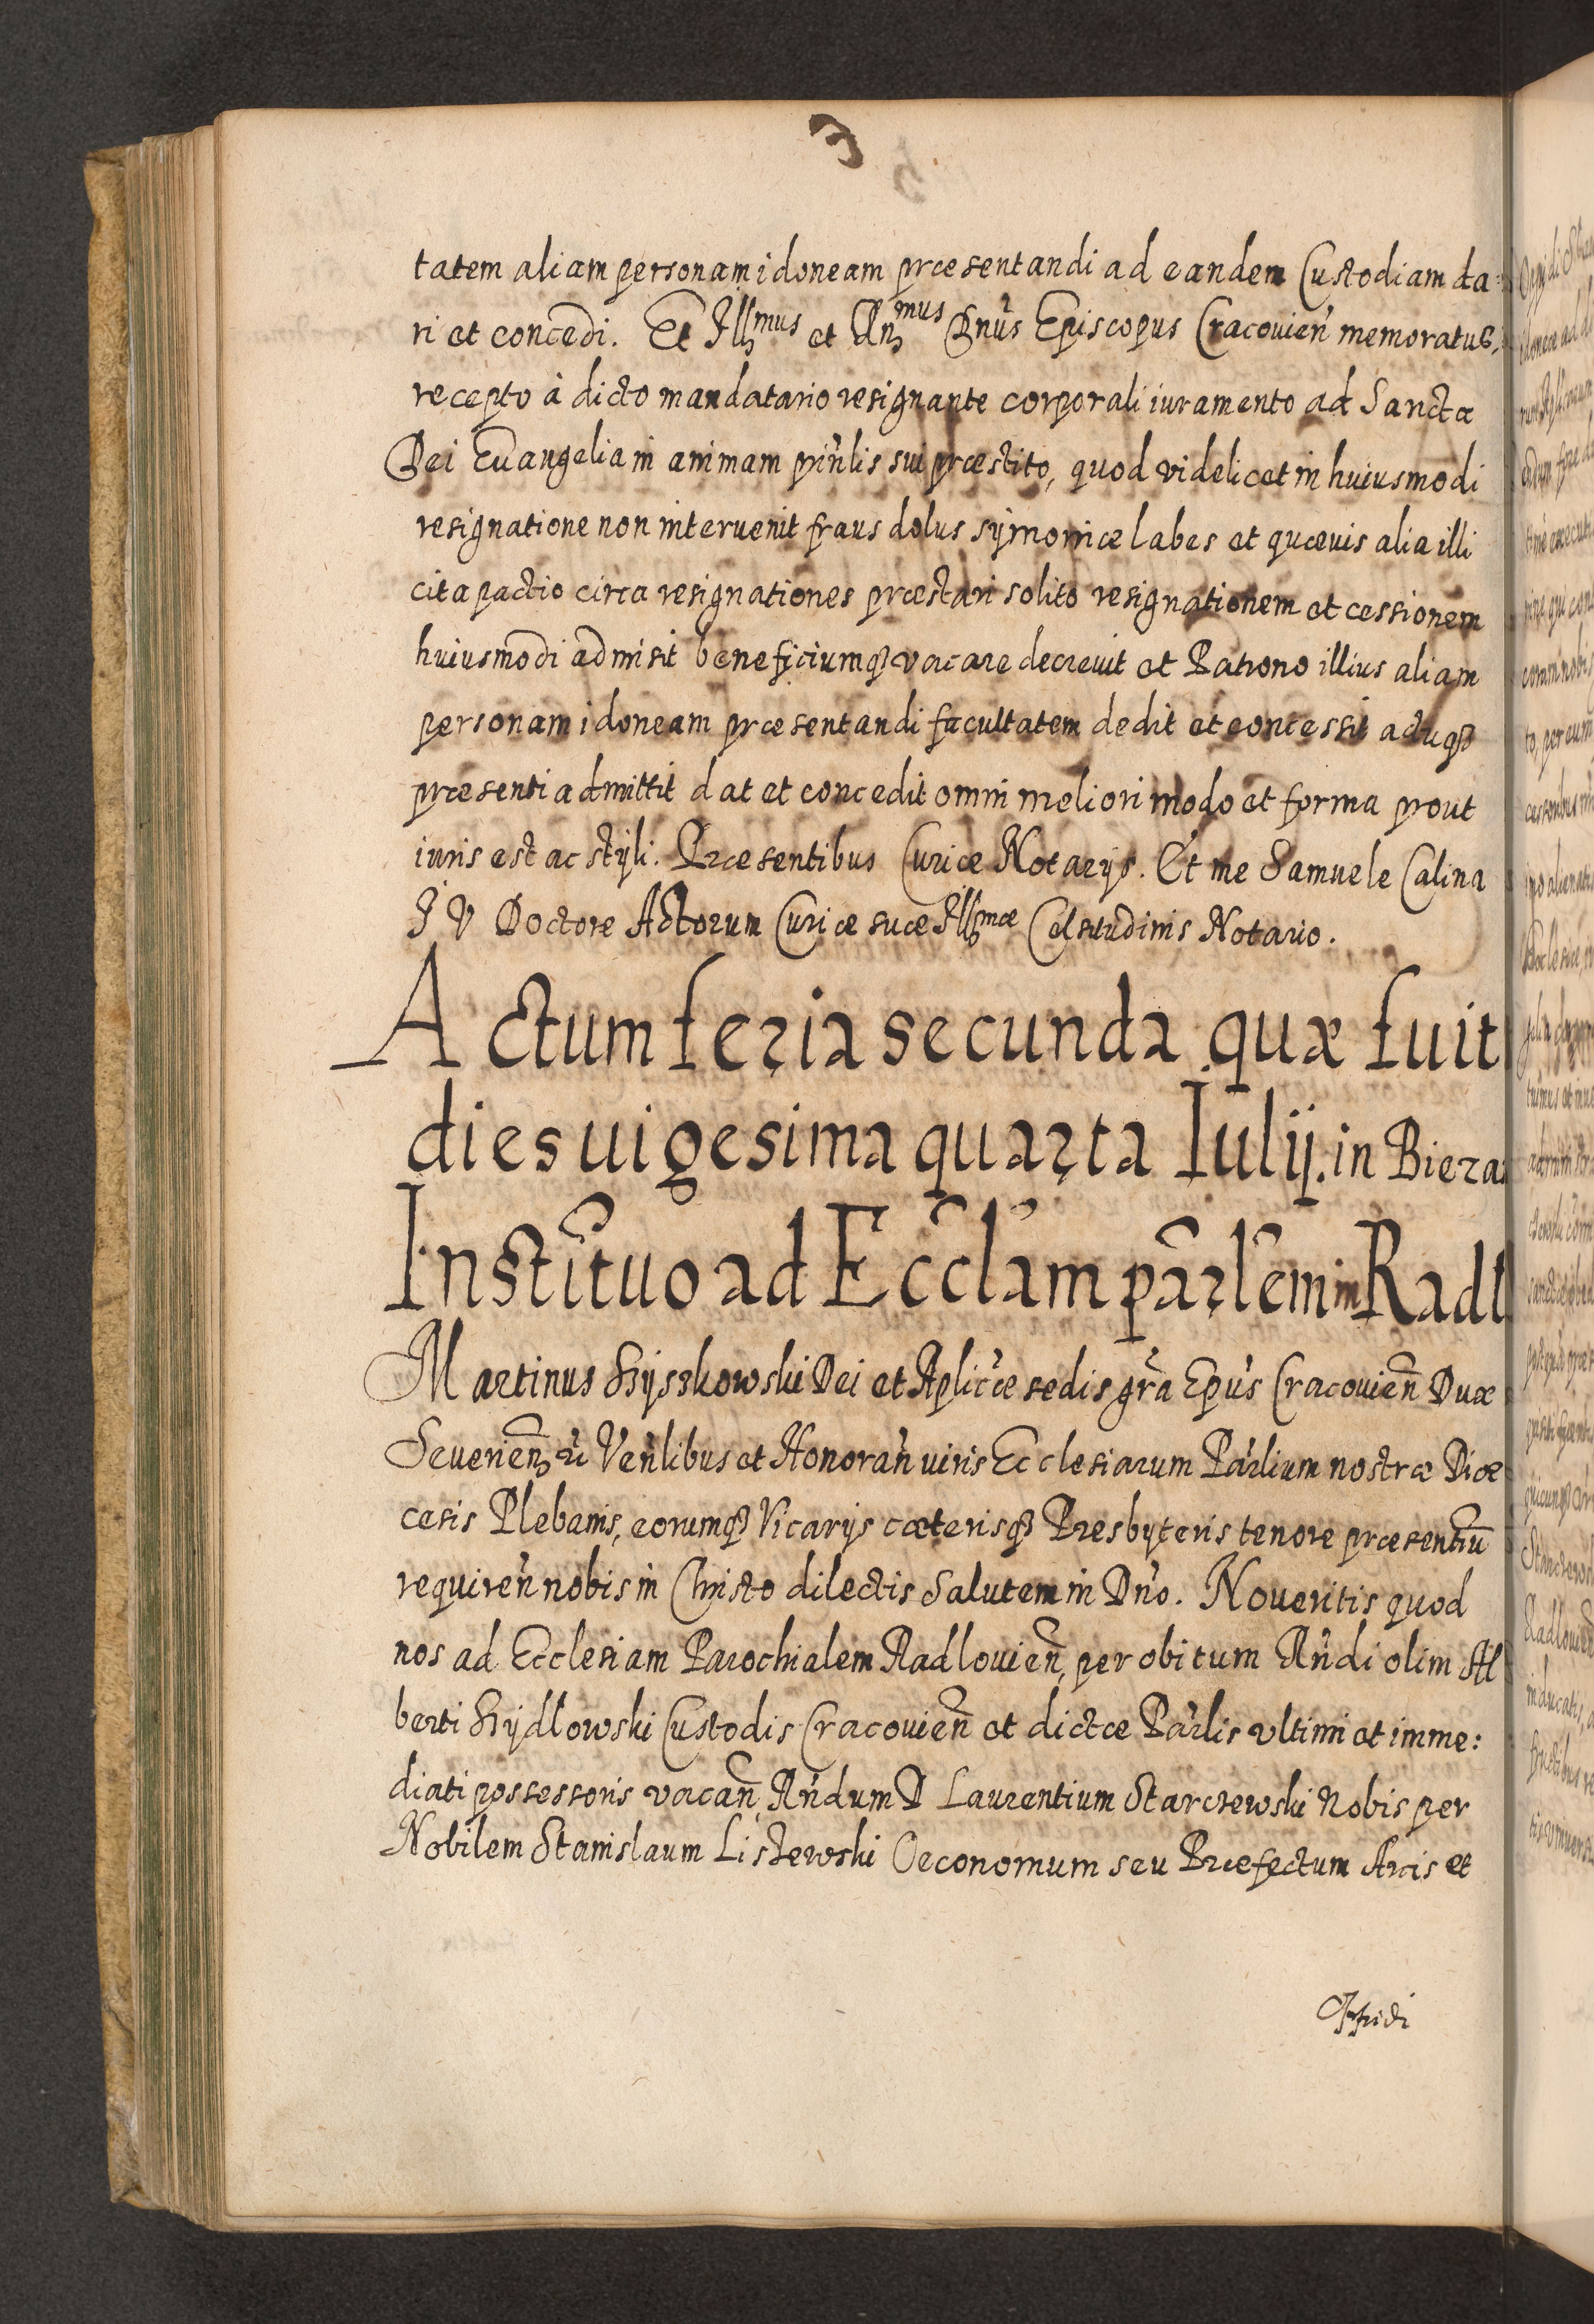 3
tatem aliam personam idoneam præsentandi ad eandem Custodiam da:
ri et concedi. Et Illmus et Rnmus Dnus Episcopus Cracovien memoratus,
recepto à dicto mandatario resignante corporali iuramento ad Sancta
Dei Euangelia in animam prinlis sui præstito, quod videlicet in huiusmodi
resignatione non interuenit fraus dolus sÿmoniæ labes et quæuis alia illi
cita pactio circa resignationes præstari solito resignationem et cessionem
huiusmodi admisit beneficiumq3 vacare decreuit et Patrono illius aliam
personam idoneam præsentandi facultatem dedit et concessit actuq3
præsenti admittit dat et concedit omni meliori modo et forma prout
iuris est ac stÿli. Præsentibus Curiæ Notarijs. Et me Samuele Calina
J V Doctore Actorum Curiæ suæ Illmæ Celsitudinis Notario.
Actum feria secunda quæ fuit
dies uigesima quarta Iulij. in Bieza
Institutio ad Ecclam parlem in Radl
Martinus Szÿszkowski Dei et Aplicæ sedis gra Epus Cracouien Dux
Seuerien rc Venlibus et Honoran viris Ecclesiarum Parlium nostræ Dioe
cesis Plebanis, eorumq3 Vicarijs cæterisq3 Presbÿteris tenore præsentiu
requiren nobis in Christo dilectis Salutem in Dno. Noueritis quod
nos ad Ecclesiam Parochialem Radlouien, per obitum Rndi olim Al
berti Szÿdlowski Custodis Cracouien et dictæ Parlis vltimi et imme:
diati possessoris vacan, Rndum D Laurentium Starczewski Nobis per
Nobilem Stanislaum Liszewski Oeconomum seu Præfectum Arcis et
Oppidi